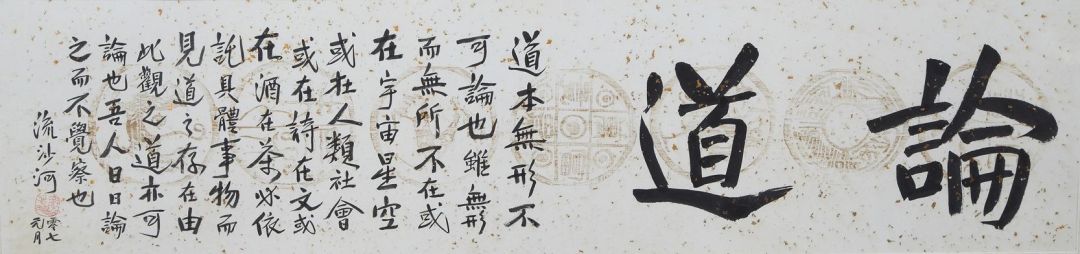 論道
道本無形不
可論也雖無形
而無所不在或
在宇宙星空
或在人類社會
或在詩在文或
在酒在茶咏依
託具體事物而
見道之存在由
此觀之道亦可
論也吾人日日論
之而不覺察也
流沙河
零七
元月